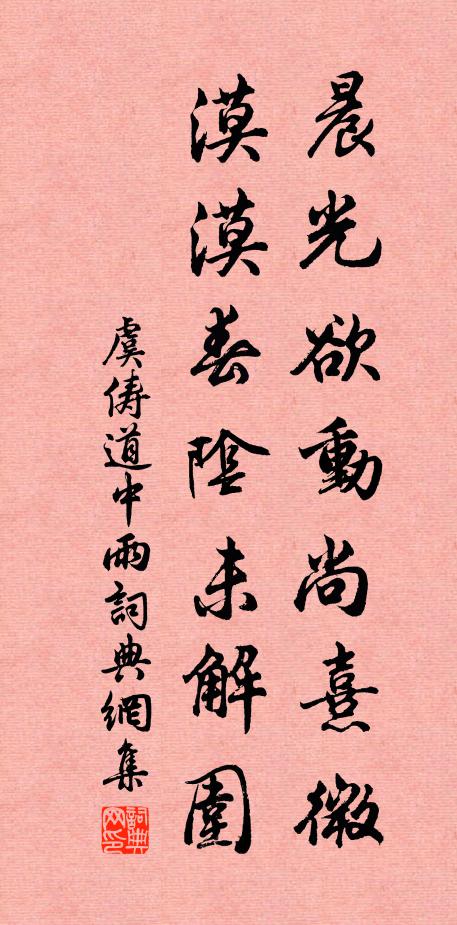 晨光欲動尚熹微
漠漠春陰未解圍
虞儔道中雨詞典網集
詞典网印